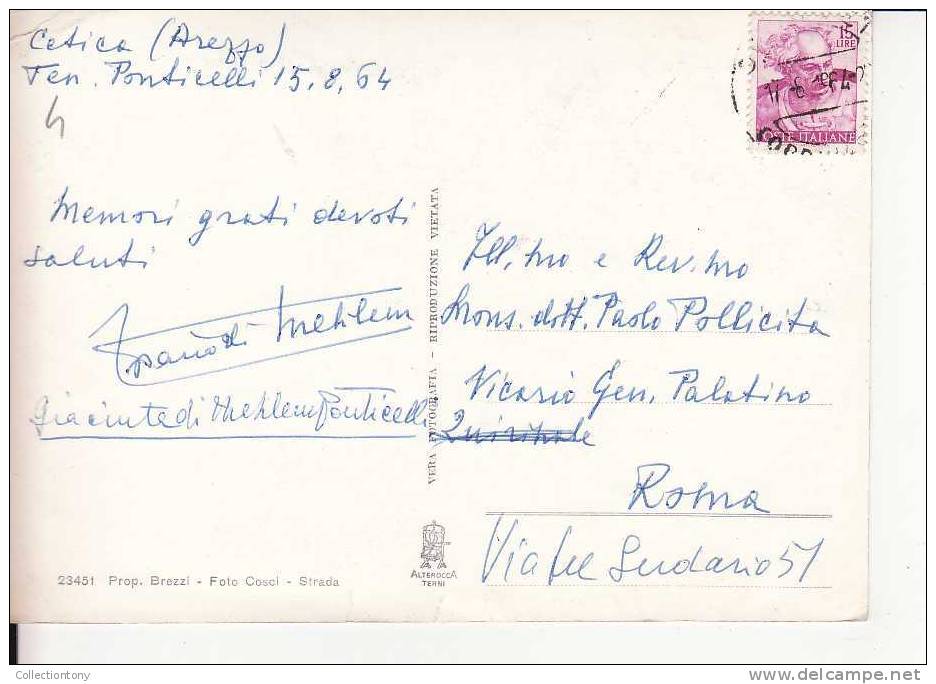 Cetica (Arezzo)
Ten. Ponticelli 15.8.64
15
LIRE
17-6 1964
POSTE ITALIANE
Memori grati devoti
saluti
di Mehlem
Giacinta di Mehlem Ponticelli
VERA FOTOGRAFIA - RIPRODUZIONE VIETATA
Ill.mo e Rev.mo
Mons. dott. Paolo Pollicita
Vicario Gen. Palatino
Quirinale
Roma
Via del Sudario 51
23451 Prop. Brezzi - Foto Cosci - Strada
ALTEROCCA
TERNI
Collectiontony
www.delcampe.net